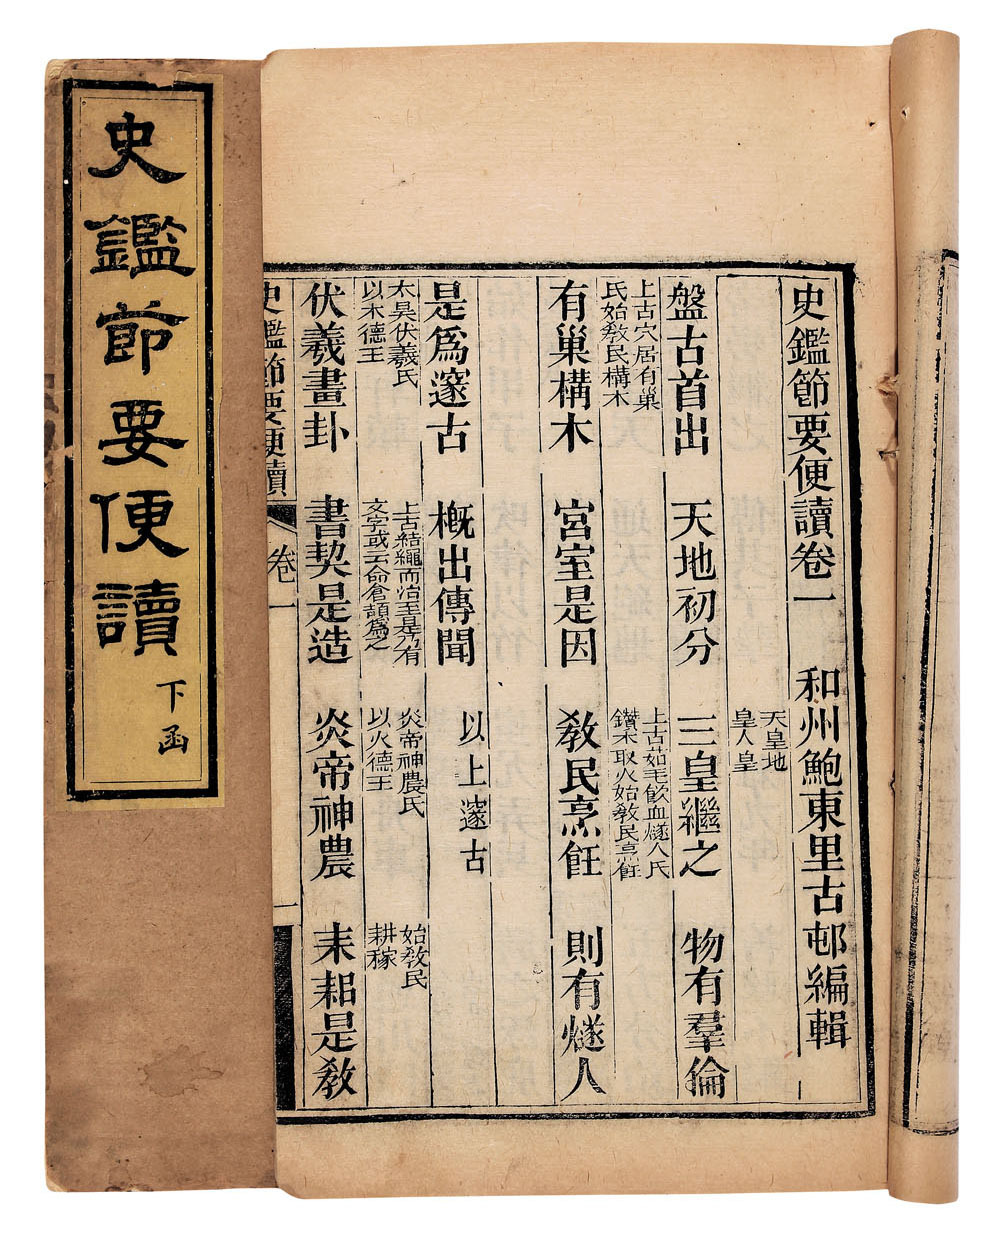 史鑑節要便讀
下函
史鑑節要便讀卷一 和州鮑東里古邨編輯
天皇地
皇人皇
盤古首出 天地初分 三皇繼之 物有羣倫
上古穴居有巢
氏始敎民構木
上古茹毛飮血燧人氏
鑽木取火始敎民烹飪
有巢構木 宮室是因 敎民烹飪 則有燧人
是爲邃古 槪出傳聞 以上邃古
太昊伏羲氏
以木德王
上古結繩而治至是乃有
文字或云命倉頡爲之
炎帝神農氏
以火德王
始敎民
耕稼
伏羲畫卦 書契是造 炎帝神農 耒耜是敎
史鑑節要便讀 卷一 一